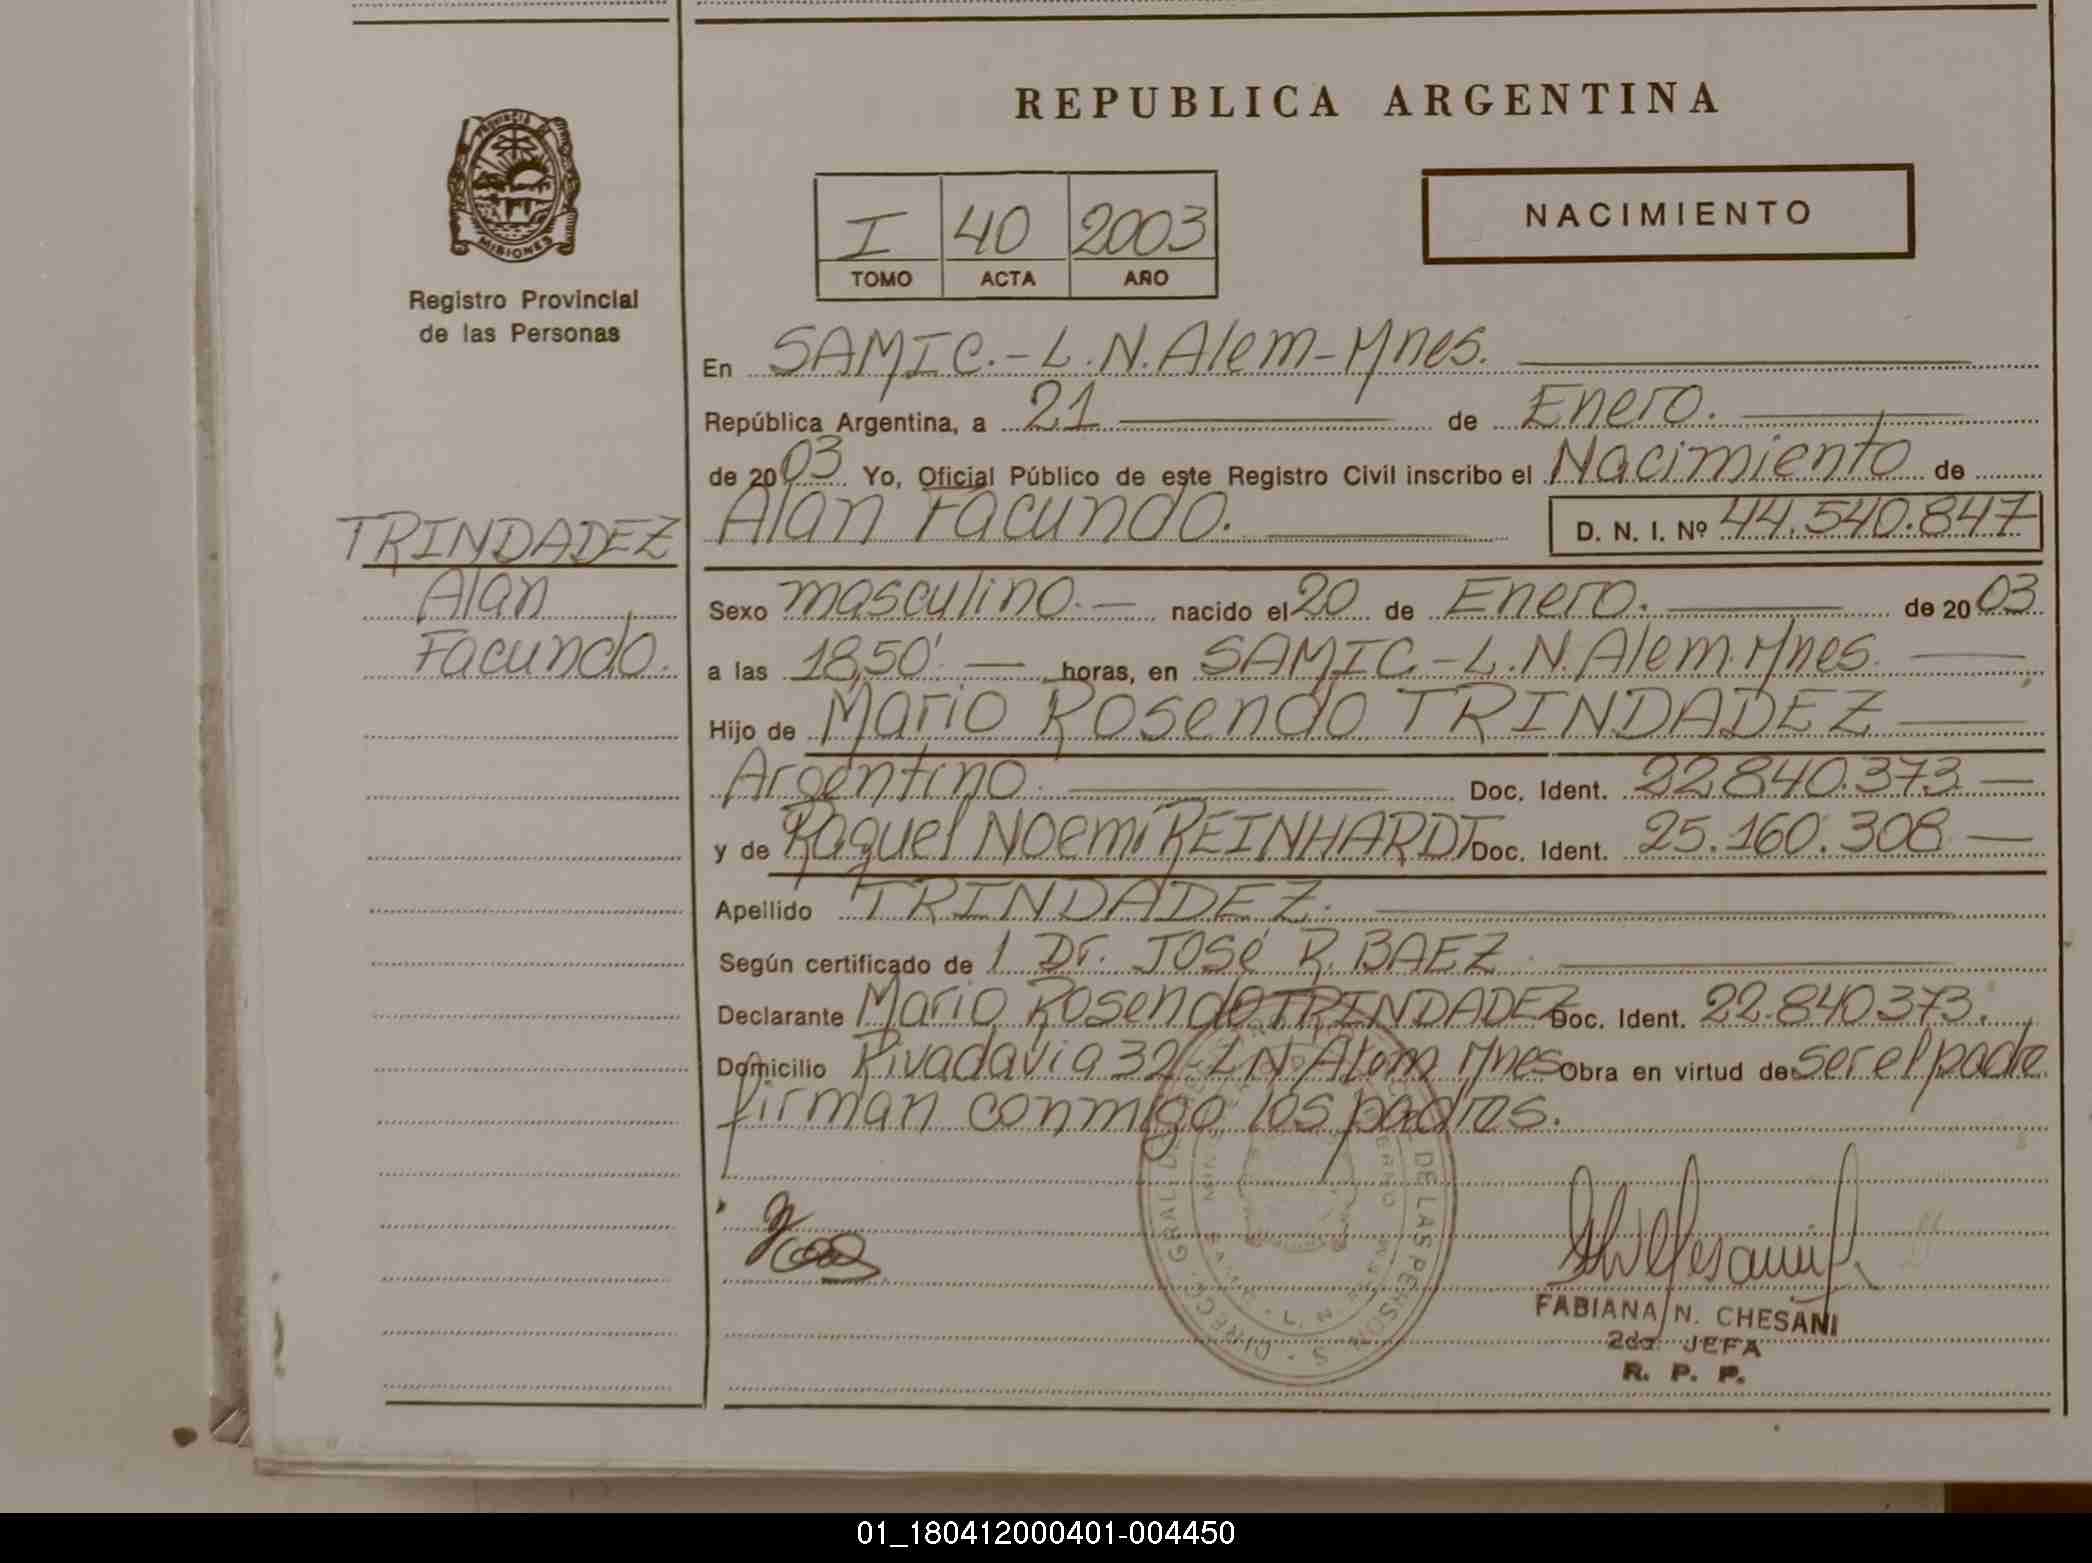 REPUBLICA ARGENTINA
PROVINCIA DE
MISIONES
Registro Provincial
de las Personas
I 40 2003
TOMO ACTA AÑO
NACIMIENTO
En SAMIC.-L.N.Alem-Mnes.
República Argentina, a 21 de Enero.
de 2003 Yo, Oficial Público de este Registro Civil inscribo el Nacimiento de
TRINDADEZ
Alan
Facundo.
Alan Facundo. D. N. I. Nº 44.540.847
Sexo masculino. nacido el 20 de Enero. de 2003
a las 18,50' horas, en SAMIC.-L.N.Alem.Mnes.
Hijo de Mario Rosendo TRINDADEZ
Argentino. Doc. Ident. 22.840.373
y de Raquel Noemi REINHARDT Doc. Ident. 25.160.308
Apellido TRINDADEZ.
Según certificado de 1 Dr. José R. BAEZ.
Declarante Mario Rosendo TRINDADEZ Doc. Ident. 22.840373.
Domicilio Rivadavia 32-LN Alem Mnes Obra en virtud de ser el padre
firman conmigo los padres.
DE LAS PERSON
FABIANA N. CHESANI
2da. JEFA
R. P. P.
01_180412000401-004450